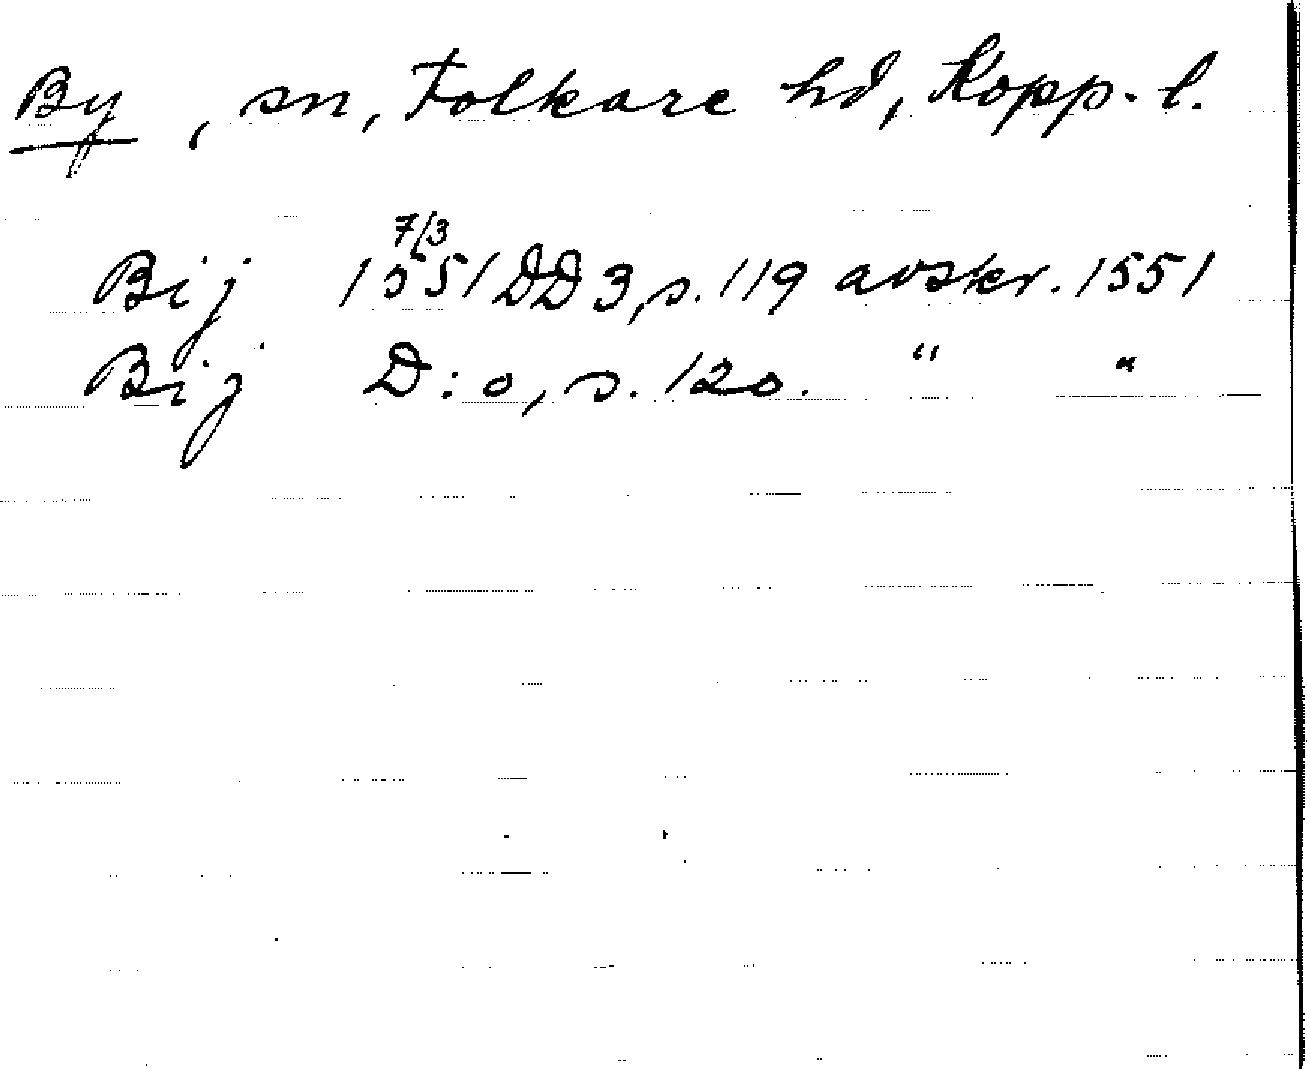 By, sn, Folkare hd, Kopp. l.
Bij 7/3 1551 DD 3, s. 119 avskr. 1551
Bij D:o, s. 120. " "